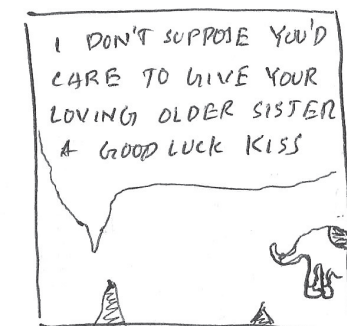 I DON'T SUPPOSE YOU'D
CARE TO GIVE YOUR
LOVING OLDER SISTER
A GOOD LUCK KISS